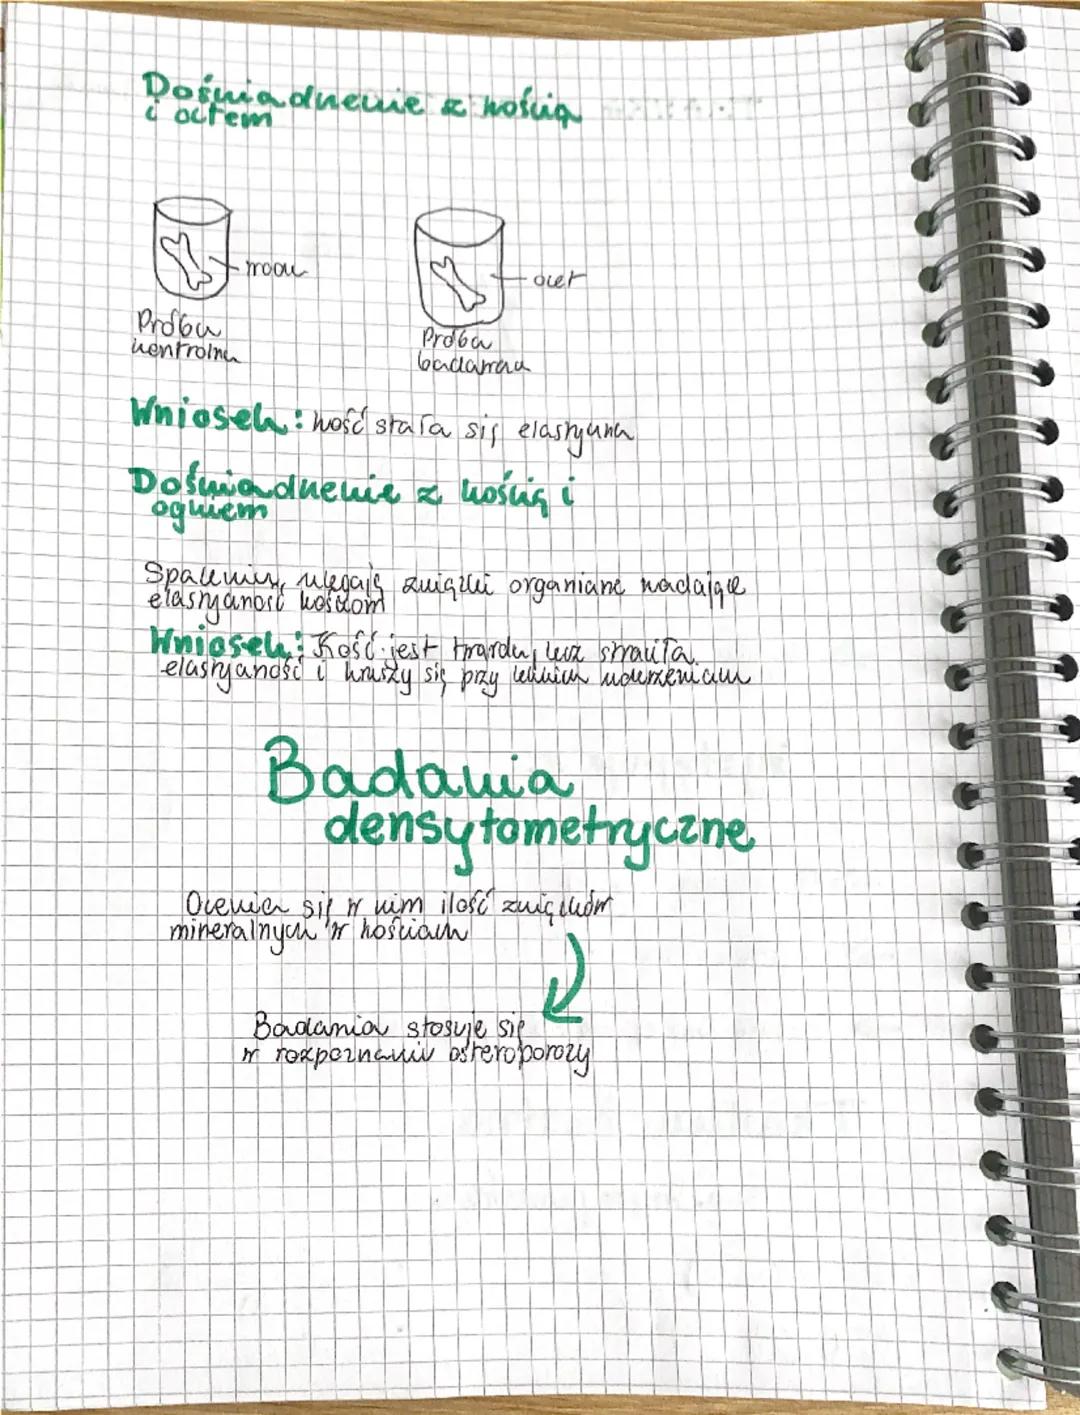 Doświadczenie z kością
i octem
woda
ocet
Próba
kontrolna
Próba
badawcza
Wniosek: kość stała się elastyczna
Doświadczenie z kością i
ogniem
Spaleniu, ulegają związki organiczne nadające
elastyczność kościom
Wniosek: Kość jest twarda, lecz straciła
elastyczność i kruszy się przy lekkim uderzeniem
Badania
densytometryczne
Ocenia się w nim ilość związków
mineralnych w kościach
Badania stosuje się
w rozpoznaniu osteroporozy